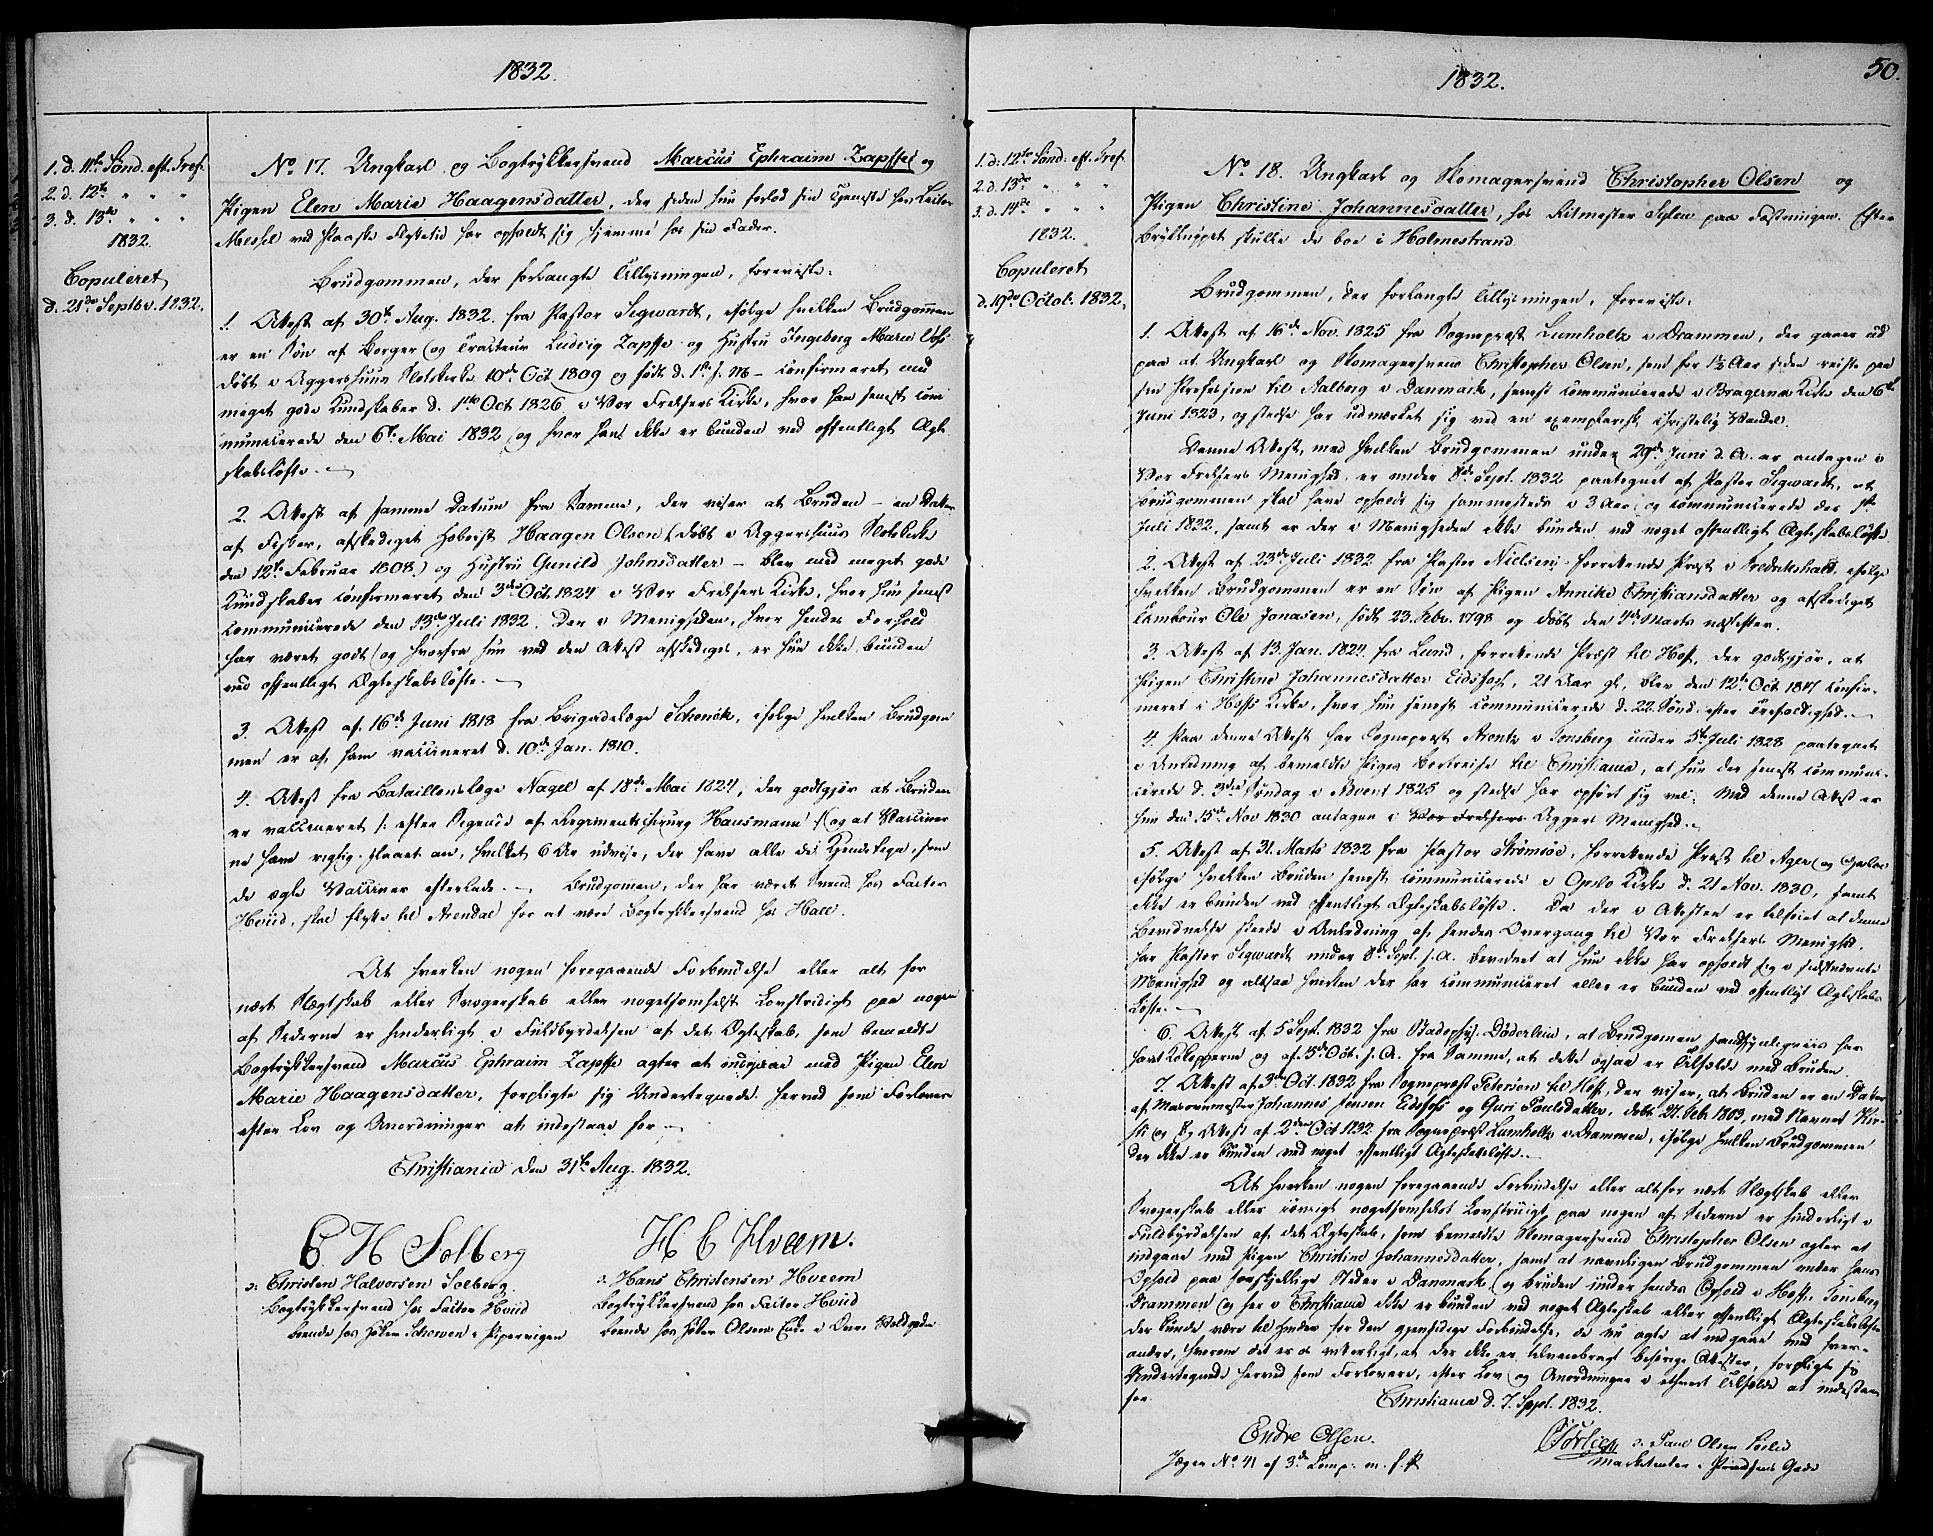 1832.
1. d. 11te Sønd. eft. Tref.
2. d. 12te " " "
3. d. 13de " " "
1832.
Copuleret
d. 21de Septbr. 1832.
No 17. Ungkarl og Bogtrykkersvend Marcus Ephraim Zapffe og
Pigen Elen Marie Haagensdatter, der siden hun forlod sin Tjeneste hos Kister
Messel ved Paaske Flyttetid har opholdt sig hjemme hos sin Fader.
Brudgommen, der forlangte Tillysningen, foreviste:
1. Attest af 30te Aug. 1832. fra Pastor Sigwardt, ifølge hvilken Brudgommen
er en Søn af Borger og Tracteur Ludvig Zapffe og Hustru Ingeborg Marie
døbt i Aggershuus Slotskirke 10de Oct 1809 og født d. 1ste s. M - confirmeret med
meget gode Kundskaber d. 1ste Oct 1826 i Vor Frelsers Kirke, hvor han senest com
municerede den 6te Mai 1832 og hvor han ikke er bunden ved offentligt Ægte
skabsløfte.
2. Attest af samme Datum fra Samme, der viser at Bruden - en Datter
af Fisker, afskediget Hoboist Haagen Olsen (døbt i Aggershuus Slotskirke
den 12te Februar 1808.) og Hustru Gunild Johnsdatter - blev med meget gode
Kundskaber confirmeret den 3de Oct. 1824 i Vor Frelsers Kirke, hvor hun senest
communicerede den 13de Juli 1832. Der i Menigheden, hvor hendes Forhold
har været godt og hvorfra hun ved den Attest afskediges, er hun ikke bunden
ved offentligt Ægteskabsløfte.
3. Attest af 16de Juni 1818 fra Brigadelæge Schenck, ifølge hvilken Brudgom
men er af ham vaccineret d. 10de Jan. 1810.
4. Attest fra Bataillonslæge Nagel af 18de Mai 1824, der godtgjør at Bruden
er vaccineret /: efter Sigende af Regimentschirurg Hausmann :/ og at Vaccinen
har rigtig slaaet an, hvilket 6 Ar udvise, der have alle de Kjendetegn, som
de ægte Vacciner efterlade. - Brudgommen, der har været Svend hos Factor
Hviid, skal flytte til Arendal for at være Bogtrykkersvend hos Hall.
At hverken nogen foregaaende Forbindelse eller alt for
nært Slægtskab eller Svogerskab eller nogetsomhelst Lovstridigt paa nogen
af Siderne er hinderligt i Fuldbyrdelsen af det Ægteskab, som bemeldte
Bogtrykkersvend Marcus Ephraim Zapffe agter at indgaae med Pigen Elen
Marie Haagensdatter, forpligte sig Undertegnede herved som Forlovere
efter Lov og Anordninger at indestaae for.
Christiania den 31te Aug. 1832.
C. H Solberg
H C Hveem.
o: Christen Halvorsen Solberg
Bogtrykkersvend hos Factor Hviid
boende hos Høker Schewen i Pipervigen
o: Hans Christensen Hveem
Bogtrykkersvend hos Factor Hviid
boende hos Høker Olsens Enke i Øvre Voldgade
50.
1832.
1. d. 12te Sønd. eft. Tref.
2. d. 13de " " "
3. d. 14de " " "
1832.
Copuleret
d. 19de Octob. 1832.
No 18. Ungkarl og Skomagersvend Christopher Olsen og
Pigen Christine Johannesdatter, hos Ritmester Sejlen paa Fæstningen. Efter
Brylluppet skulle de boe i Holmestrand.
Brudgommen, der forlangte Tillysningen, foreviste:
1. Attest af 16de Nov. 1825 fra Sognepræst Lumholtz i Drammen, der gaaer ud
paa at Ungkarl og Skomagersvend Christopher Olsen, som for 1½ Aar siden reiste paa
sin Profession til Aalborg i Danmark, senest communicerede i Bragernæs Kirke den 6te
Juni 1823, og stedse har udmærket sig ved en exemplarisk christelig Vandel.
Denne Attest, med hvilken Brudgommen under 29de Juni d. A. er antagen i
Vor Frelsers Menighed, er under 8de Sept. 1832 paategnet af Pastor Sigwardt, at
Brudgommen skal have opholdt sig sammesteds i 3 Aar og communicerede der 1ste
Juli 1832, samt er der i Menigheden ikke bunden ved noget offentligt Ægteskabsløfte.
2. Attest af 23de Juli 1832 fra Pastor Nielsen, forrettende Præst i Fredrikshald, ifølge
hvilken Brudgommen er en Søn af Pigen Annike Christiansdatter og afskediget
Tambour Ole Jonasen, født 23. Febr. 1798 og døbt den 4de Marts næstefter.
3. Attest af 13. Jan. 1824. fra Lund, forrettende Præst til Hof, der godtgjør, at
Pigen Christine Johannesdatter Eidsfos, 21 Aar gl, blev den 12te Oct. 1817 confir-
meret i Hofs Kirke, hvor hun senest communicerede d. 22. Sønd. efter Trefoldighed.
4. Paa denne Attest har Sognepræst Arentz i Tonsberg under 5te Juli 1828 paategnet
i Anledning af bemeldte Piges Bortreise til Christiania, at hun der senest communi-
cerede d. 3die Søndag i Advent 1825 og stedse har opført sig vel. Med denne Attest er
hun den 15de Nov 1830 antagen i Vor Frelsers Aggers Menighed.
5. Attest af 31. Marts 1832 fra Pastor Strømsøe, forrettende Præst til Ager og
ifølge hvilken Bruden senest communicerede i Opslo Kirke d. 21 Nov. 1830, samt
ikke er bunden ved offentligt Ægteskabsløfte. Da der i Attesten er tilføiet at denne
Bevidnelse skeede i Anledning af hendes Overgang til Vor Frelsers Menighed,
har Pastor Sigwardt under 8de Sept. s. A. bevidnet at hun ikke har opholdt sig i sidstnævnte
Menighed og altsaa hverken der har communiceret eller er bunden ved offentligt Ægteskabs
løfte.
6. Attest af 5 Sept. 1832 fra Stadsphys. Döderlein, at Brudgommen sandsynligviis har
havt Kokopperne og af 15de Oct. s. A. fra Samme, at dette ogsaa er Tilfældet med Bruden.
7. Attest af 3die Oct. 1832 fra Sognepræst Petersen til Hof, der viser, at Bruden er en Datter
af Masovnmester Johannes Jensen Eidsfos og Guri Paulsdatter, døbt 27. Feb. 1803, med Navnet Kir-
sti og 8, Attest af 2den Oct 1832 fra Sognepræst Lumholtz i Drammen, ifølge hvilken Brudgommen
der ikke er bunden ved noget offentligt Ægteskabsløfte.
At hverken nogen foregaaende Forbindelse eller altfor nært Slægtskab eller
Svogerskab eller iøvrigt nogetsomhelst Lovstridigt paa nogen af Siderne er hinderligt i
Fuldbyrdelsen af det Ægteskab, som bemeldte Skomagersvend Christopher Olsen agter at
indgaae med Pigen Christine Johannesdatter, samt at navnligen Brudgommen under hans
Ophold paa forskjellige Steder i Danmark og Bruden under hendes Ophold i Hof, Tonsberg
Drammen og her i Christiania ikke er bunden ved noget Ægteskab eller offentligt Ægteskabsløfte
der kunde være til Hinder for den gjensidige Forbindelse, de nu agte at indgaae med hver-
andre, hvorom det er os vitterligt, at der ikke er tilveiebragt behørige Attester, forpligte sig
Undertegnede herved som Forlovere, efter Lov og Anordninger i ethvert Tilfælde at indestaae
for.
Christiania d. 7. Sept. 1832.
Endre Olsen.
Jæger No 41 af 3de Comp.
o: Paul Olsen
Marketenter i Prindsens Gade